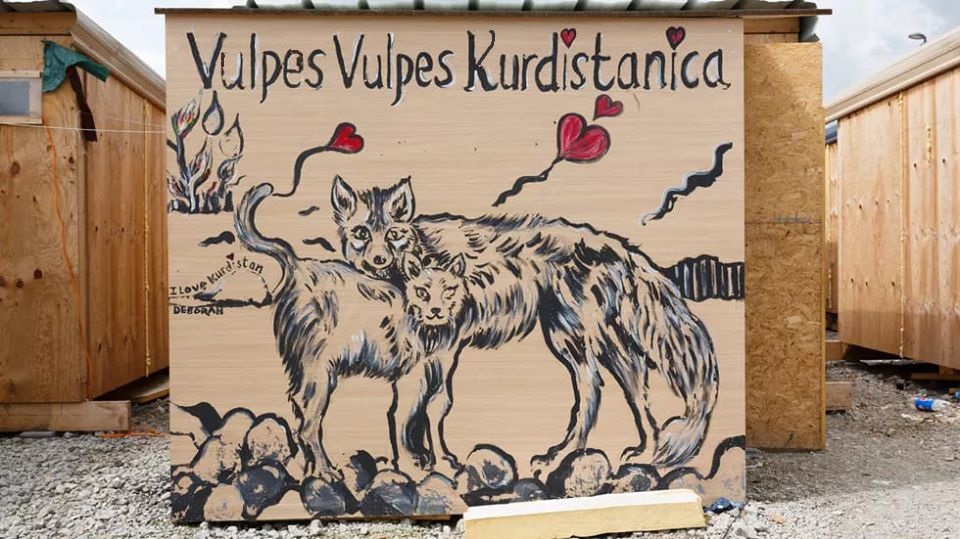 Vulpes Vulpes Kurdistanica
I Love Kurdistan
DEBORAH